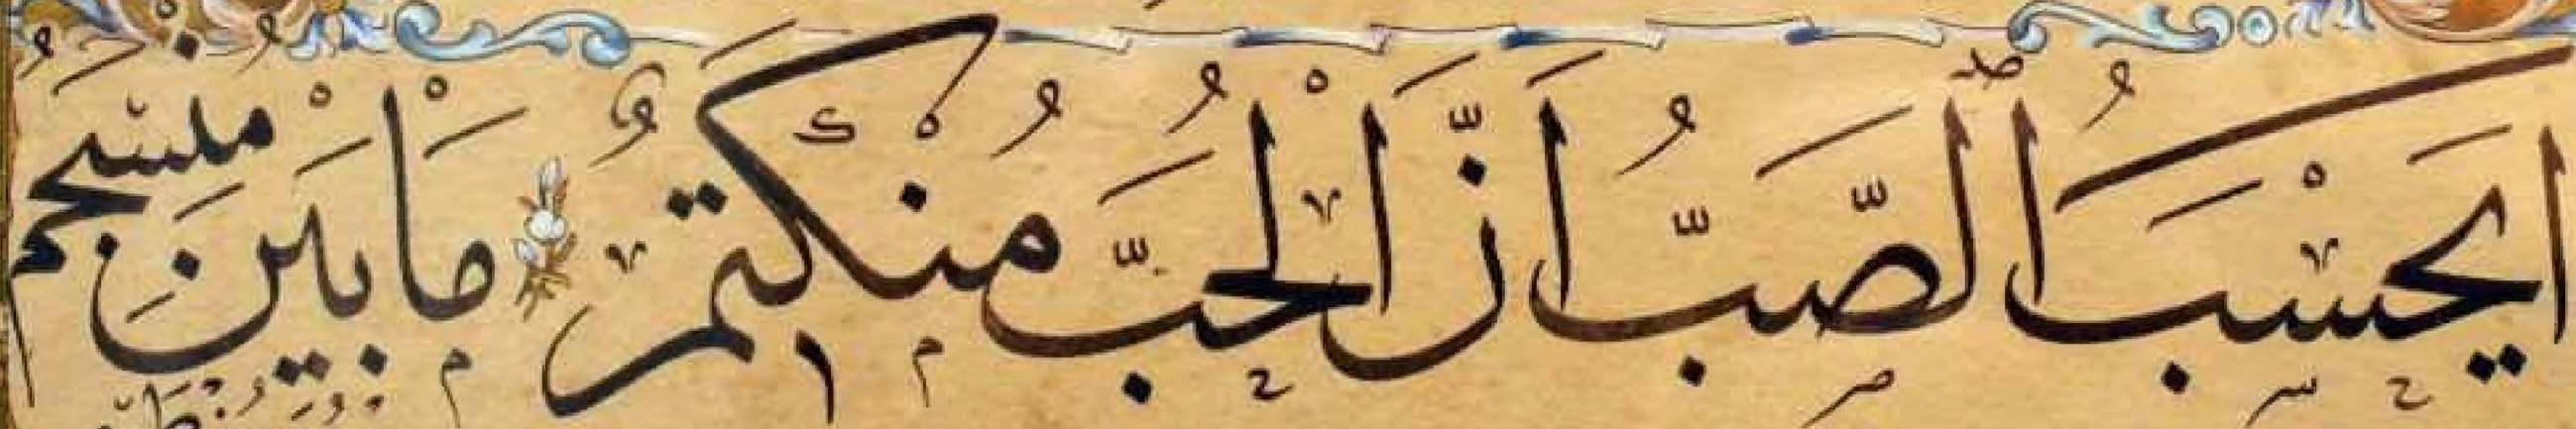 اَيَحْسَبُ الصَّبُّ اَنَّ الْحُبَّ مُنْكَتِمٌ مَا بَيْنَ مُنْسَجِمٍ